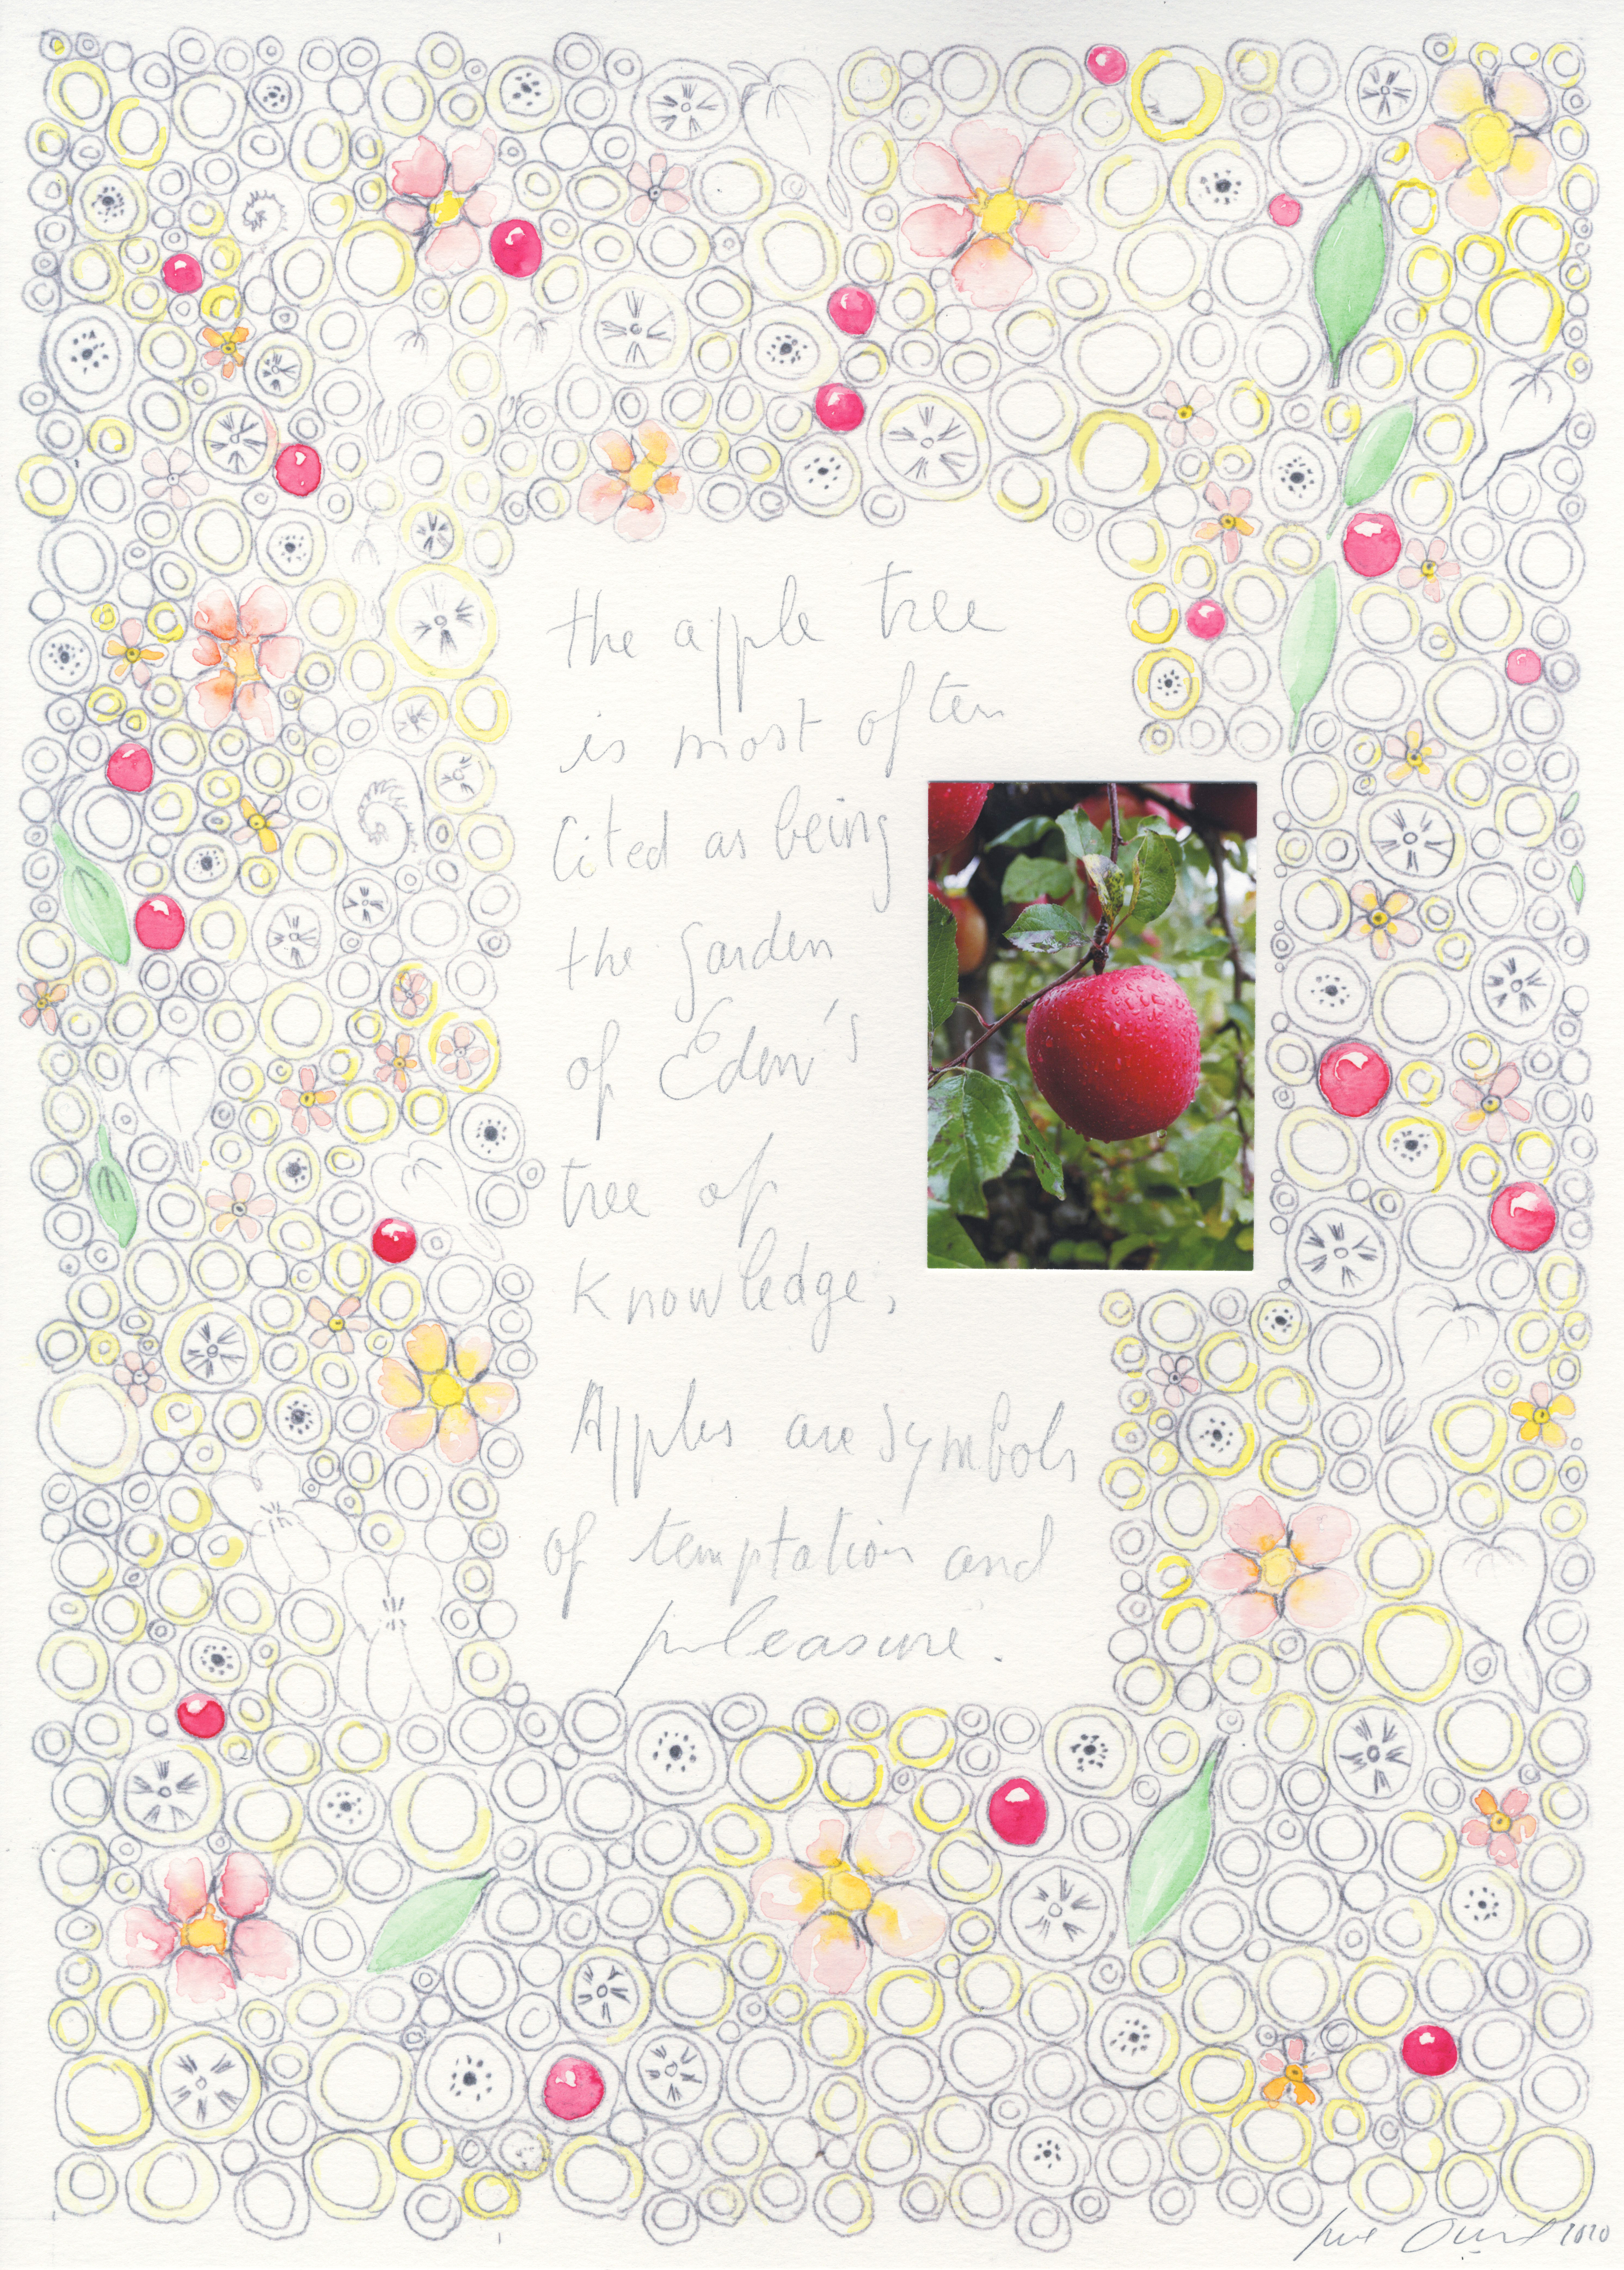 the apple tree
is most often
Cited as being
the garden
of Eden's
tree of
knowledge,
Apples are symbols
of temptation and
pleasure.
2020